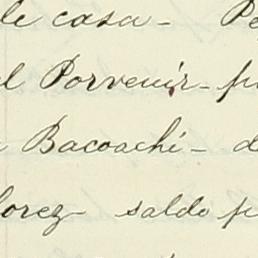 de casa - Pe
el Porvenir - p
Bacoachi - d
lorez - saldo p